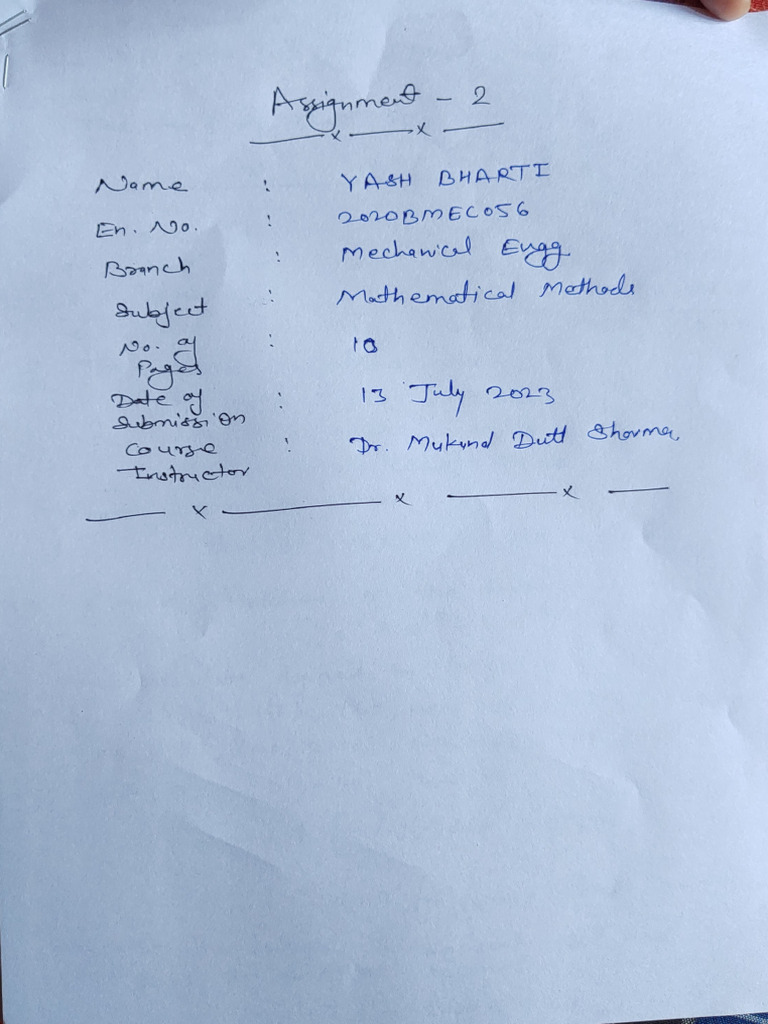 Assignment - 2
Name : YASH BHARTI
En. No. : 2020BMEC056
Branch : Mechanical Engg
Subject : Mathematical Methods
No. of : 10
Pages
Date of : 13 July 2023
Submission
Course : Dr. Mukund Dutt Sharma
Instructor